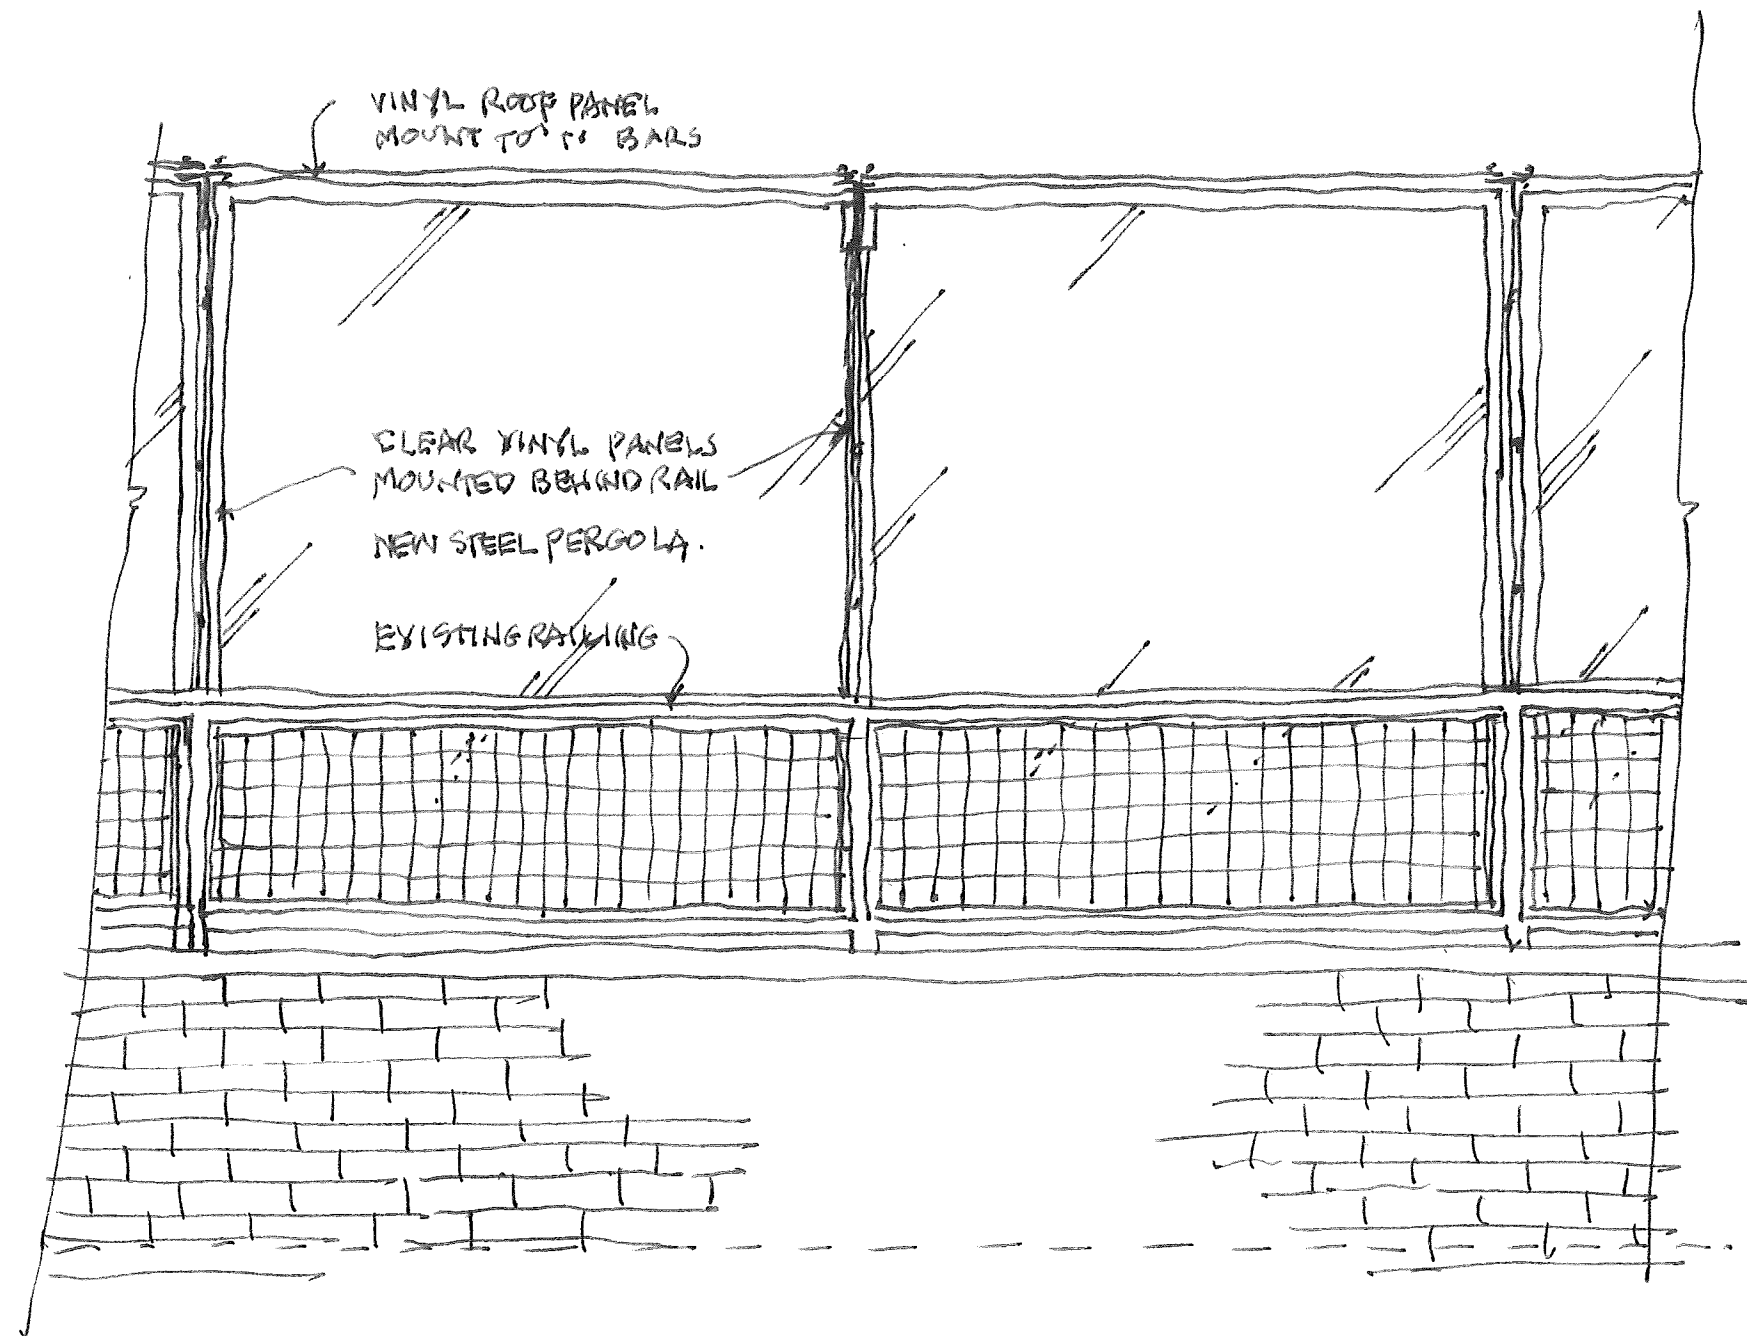 VINYL ROOF PANEL
MOUNT TO BARS
CLEAR VINYL PANELS
MOUNTED BEHIND RAIL
NEW STEEL PERGOLA.
EXISTING RAILING